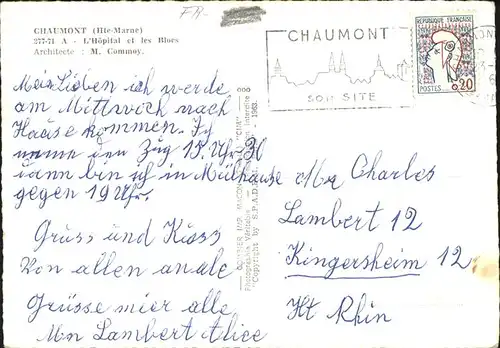 FR-
CHAUMONT (Hte-Marne)
377-71 A - L'Hôpital et les Blocs
Architecte : M. Commoy.
CHAUMONT
SON SITE
REPUBLIQUE FRANÇAISE
POSTES 0,20
Mei Lieben ich werde
am Mittwoch nach
Hause kommen. Ich
nenne den Zug 15. Uhr 30
dann bin ich in Mülhause
gegen 19 Uhr.
Gruss und Küss
Von allen an alle
Grüsse mier alle
Mn Lambert Alice
COMBIER IMP. MACON
Photographie Véritable - Reproduction Interdite
"Copyright by S.P.A.D.E.M. - 1963.
Charles
Lambert 12
Kingersheim 12
Ht Rhin